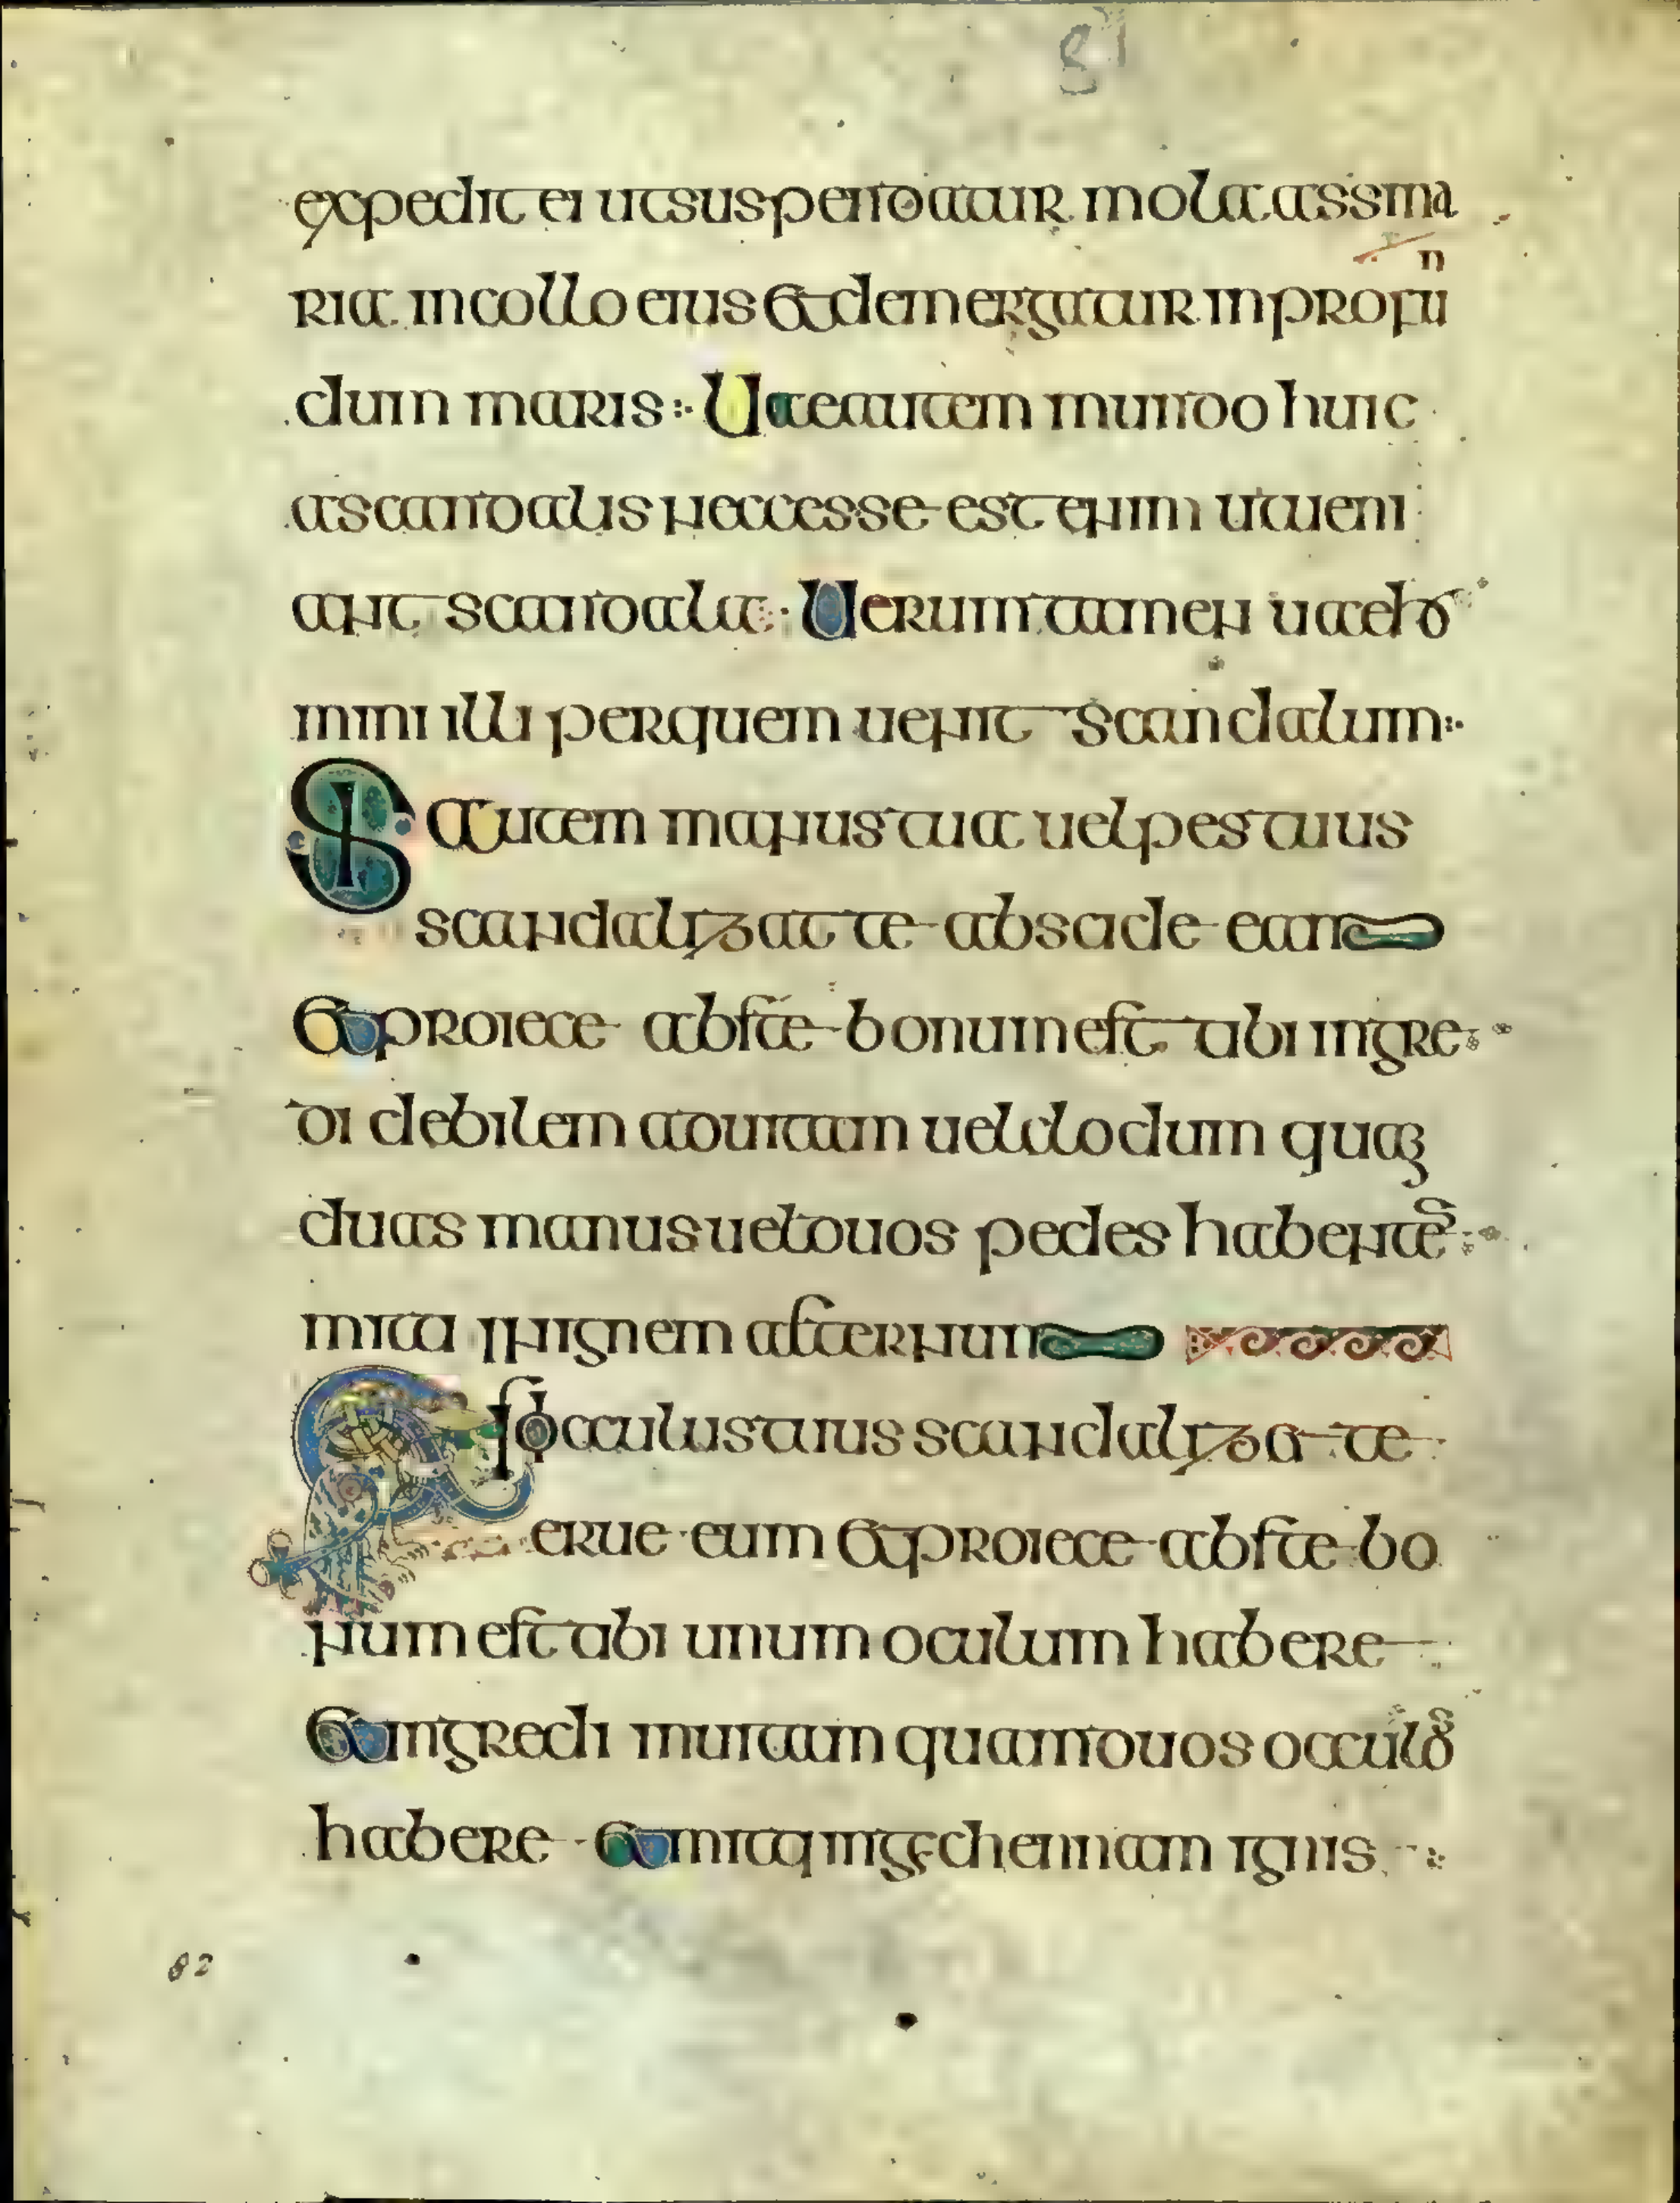 81
expedit ei ut suspendatur mola assina
ria in collo eius et demergatur in profu
n
dum maris Uae autem mundo huic
a scandalis neccesse est enim ut ueni
ant scandala Uerum tamen uae ho
mini illi per quem uenit scandalum
Si autem manus tua uel pes tuus
scandalizat te abscide eam
et proiece abs te bonum est tibi ingre
di debilem ad uitam uel clodum quam
duas manus uel duos pedes habentem
miti in ignem aeternum
Et si occulus tuus scandalizat te
erue eum et proiece abs te bo
num est tibi unum oculum habere
et in ingredi in uitam quam duos occulos
habere et miti in gechennam ignis
82